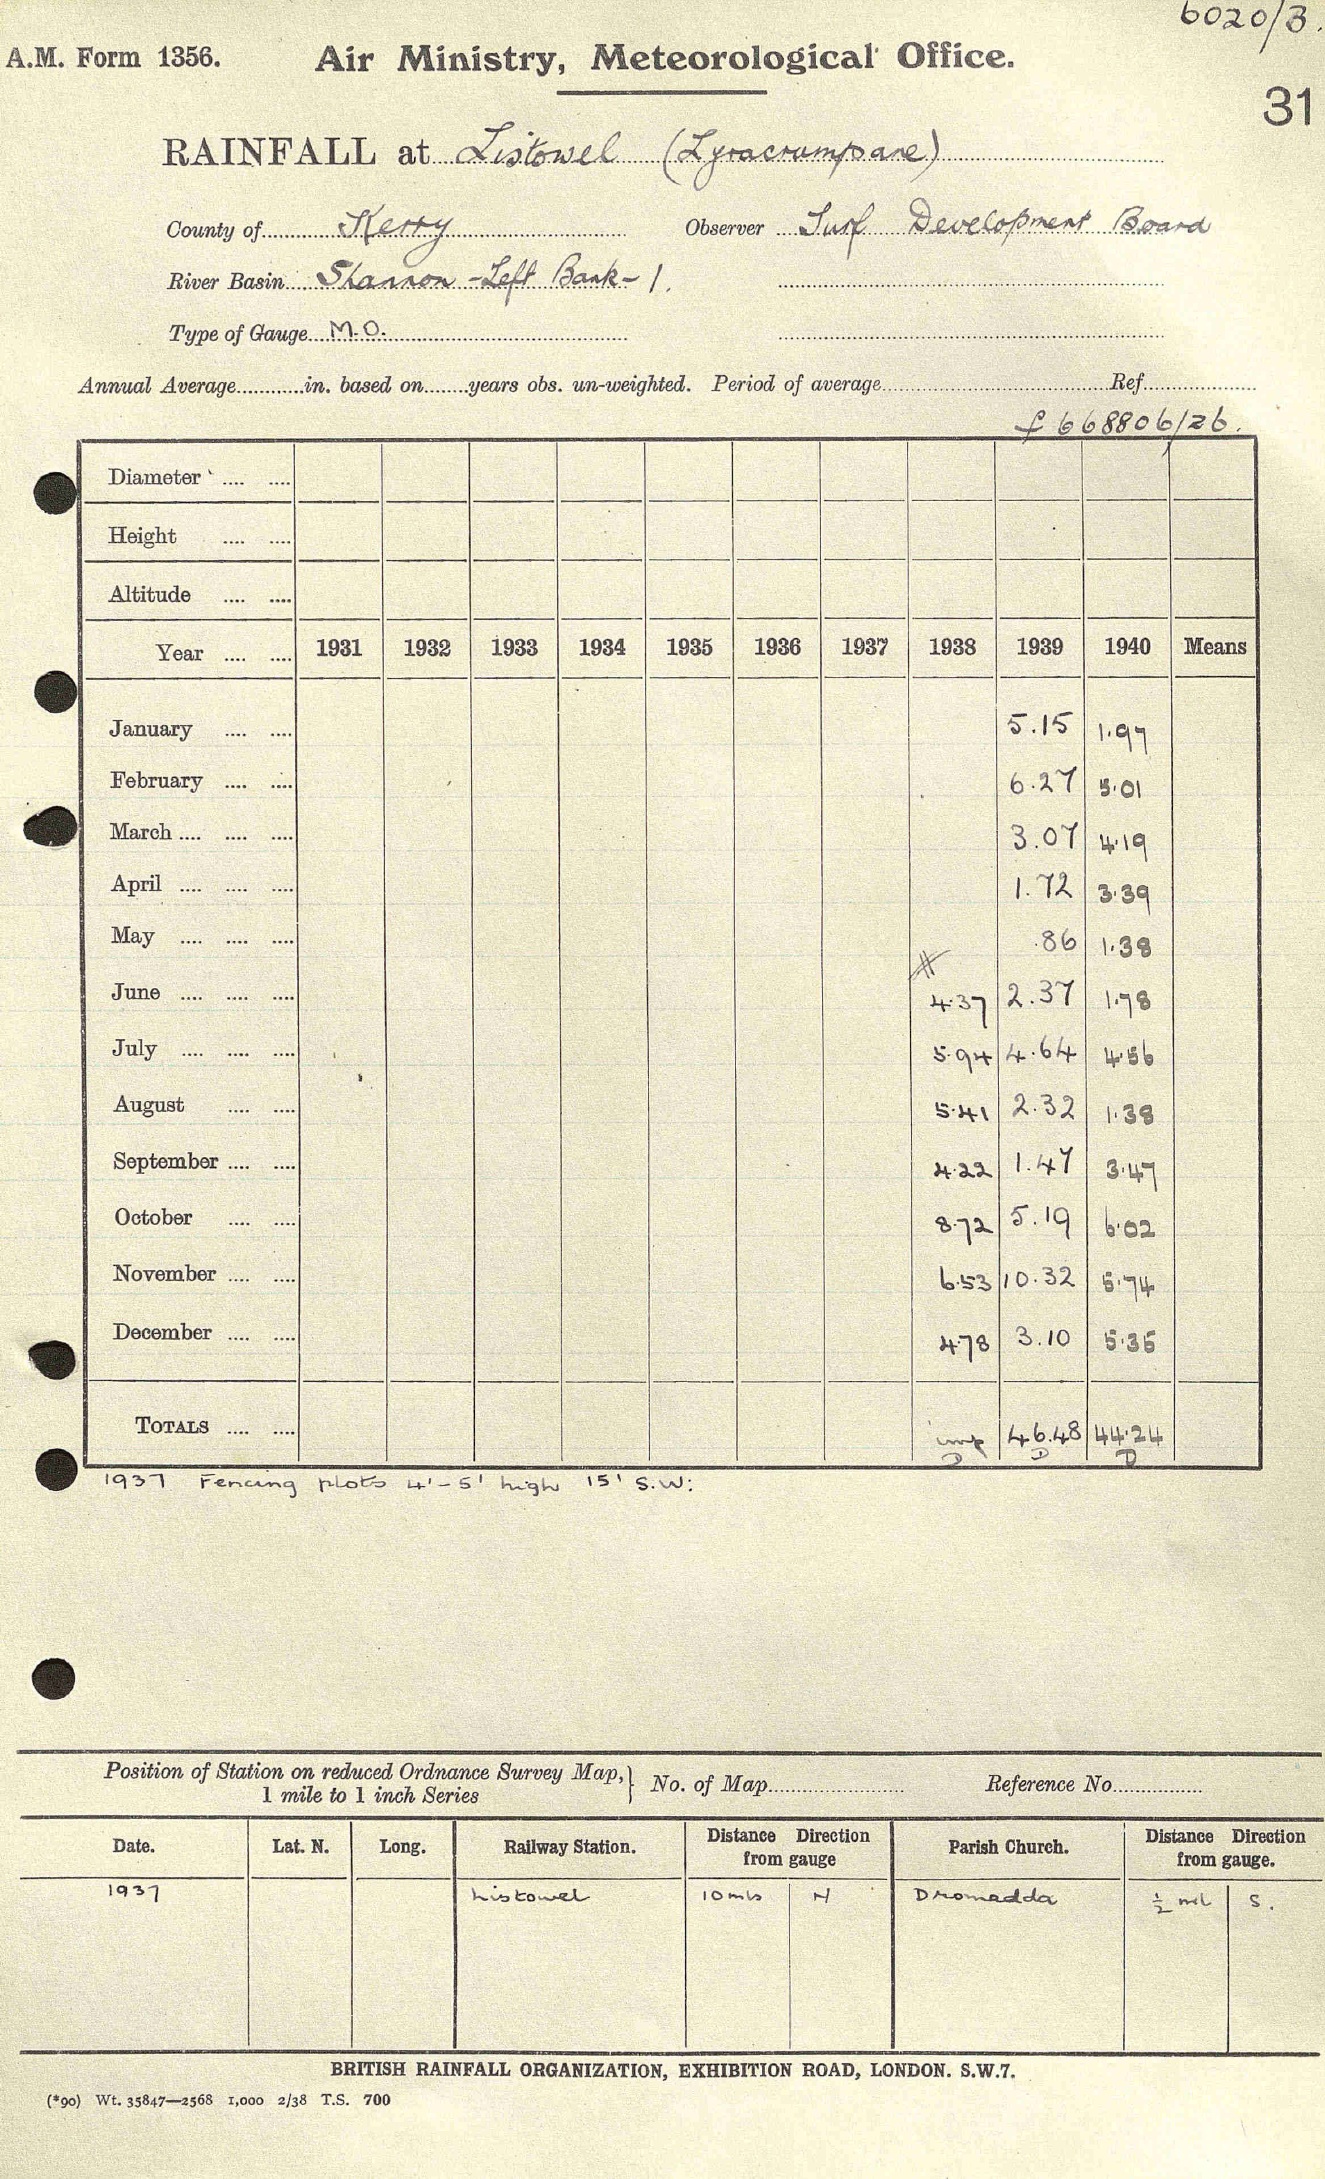 6020/3.
A.M. Form 1356. Air Ministry, Meteorological Office.
31
RAINFALL at Listowel (Lyracrumpane)
County of Kerry Observer Turf Development Board
River Basin Shannon - Left Bank - 1.
Type of Gauge M.O.
Annual Average in. based on years obs. un-weighted. Period of average Ref
f 668806/26.
Diameter
Height
Altitude
Year 1931 1932 1933 1934 1935 1936 1937 1938 1939 1940 Means
January 5.15 1.97
February 6.27 5.01
March 3.07 4.19
April 1.72 3.39
May .86 1.38
June 4.37 2.37 1.78
July 5.94 4.64 4.56
August 5.41 2.32 1.38
September 4.22 1.47 3.47
October 8.72 5.19 6.02
November 6.53 10.32 5.74
December 4.78 3.10 5.35
TOTALS imp 46.48 44.24
D D D
1937 Fencing plots 4'-5' high 15' S.W:
Position of Station on reduced Ordnance Survey Map, } No. of Map Reference No.
1 mile to 1 inch Series
Date. Lat. N. Long. Railway Station. Distance Direction from gauge Parish Church. Distance Direction from gauge.
1937 Listowel 10 mls N Dromadda ½ ml S.
BRITISH RAINFALL ORGANIZATION, EXHIBITION ROAD, LONDON. S.W.7.
(*90) Wt. 35847—2568 1,000 2/38 T.S. 700